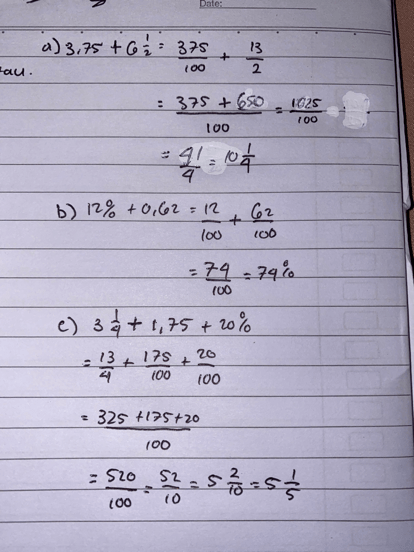 Date:
a) 3,75 + 6 1/2 = 375/100 + 13/2
= 375 + 650/100 = 1025/100
= 41/4 = 10 1/4
b) 12% + 0,62 = 12/100 + 62/100
= 74/100 = 74%
c) 3 1/4 + 1,75 + 20%
= 13/4 + 175/100 + 20/100
= 325 + 175 + 20/100
= 520/100 = 52/10 = 5 2/10 = 5 1/5